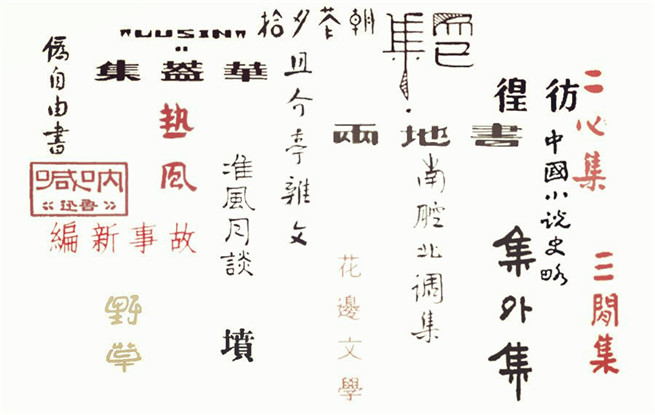 僞自由書
"LUSIN"
華蓋集
朝花夕拾
而已集
且介亭雜文
熱風
准風月談
兩地書
彷徨
二心集
中國小说史略
南腔北调集
呐喊
魯迅
故事新編
野草
墳
花邊文學
集外集
三閒集